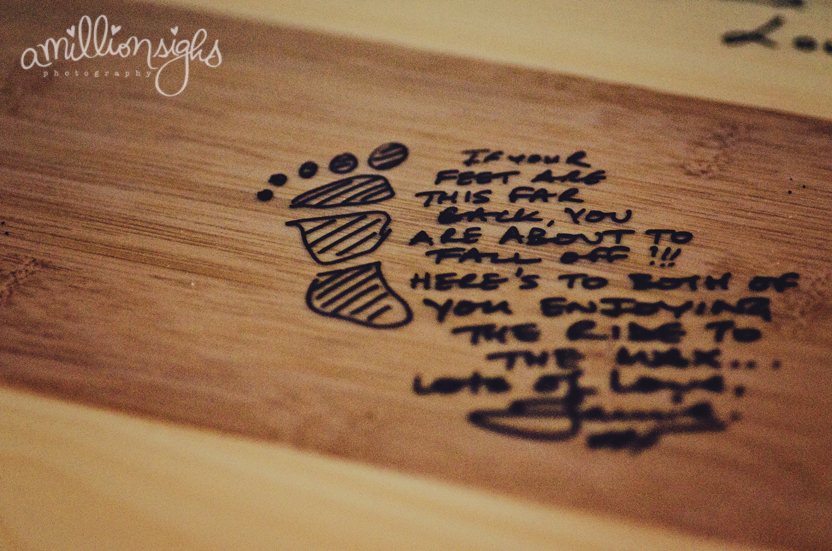 amillionsighs
photography
IF YOUR
FEET ARE
THIS FAR
BACK, YOU
ARE ABOUT TO
FALL OFF !!!
HERE'S TO BOTH OF
YOU ENJOYING
THE RIDE TO
THE MAX...
LOTS OF LOVE,